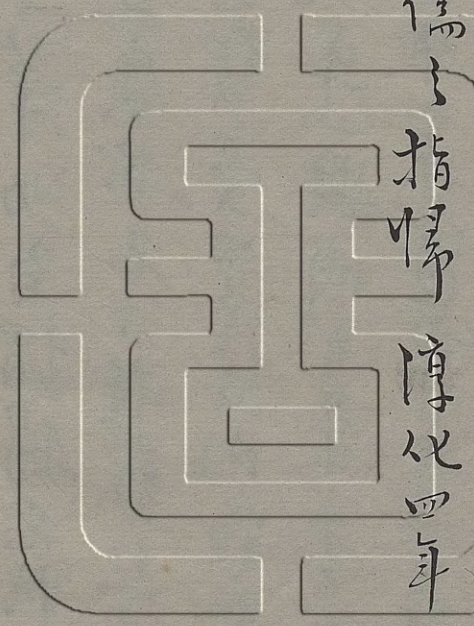 儒之指歸 淳化四年